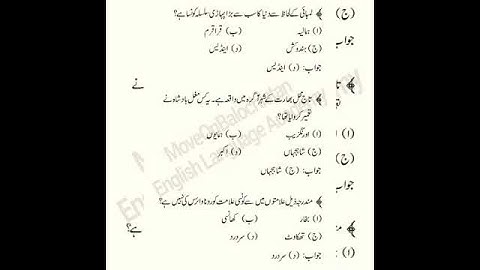 ﴾ لمبائی کے لحاظ سے دنیا کا سب سے بڑا پہاڑی سلسلہ کونسا ہے؟
(ا) ہمالیہ (ب) قراقرم
(ج) ہندوکش (د) اینڈیس
جواب: (د) اینڈیس
﴾ تاج محل بھارت کے شہر آگرہ میں واقعہ ہے۔ یہ کس مغل بادشاہ نے
تعمیر کروایا تھا؟
(ا) اورنگزیب (ب) ہمایوں
(ج) شاہجہاں (د) اکبر
جواب: (ج) شاہجہاں
﴾ مندرجہ ذیل علامتوں میں سے کونسی علامت کورونا وائرس کی نہیں ہے؟
(ا) بخار (ب) کھانسی
(ج) تھکاوٹ (د) سردرد
جواب: (د) سردرد
(ج)
جواب
(ا)
(ج)
جواب
(ا)
نے
ہے؟
MoveOnBalochistan
English Language Academy